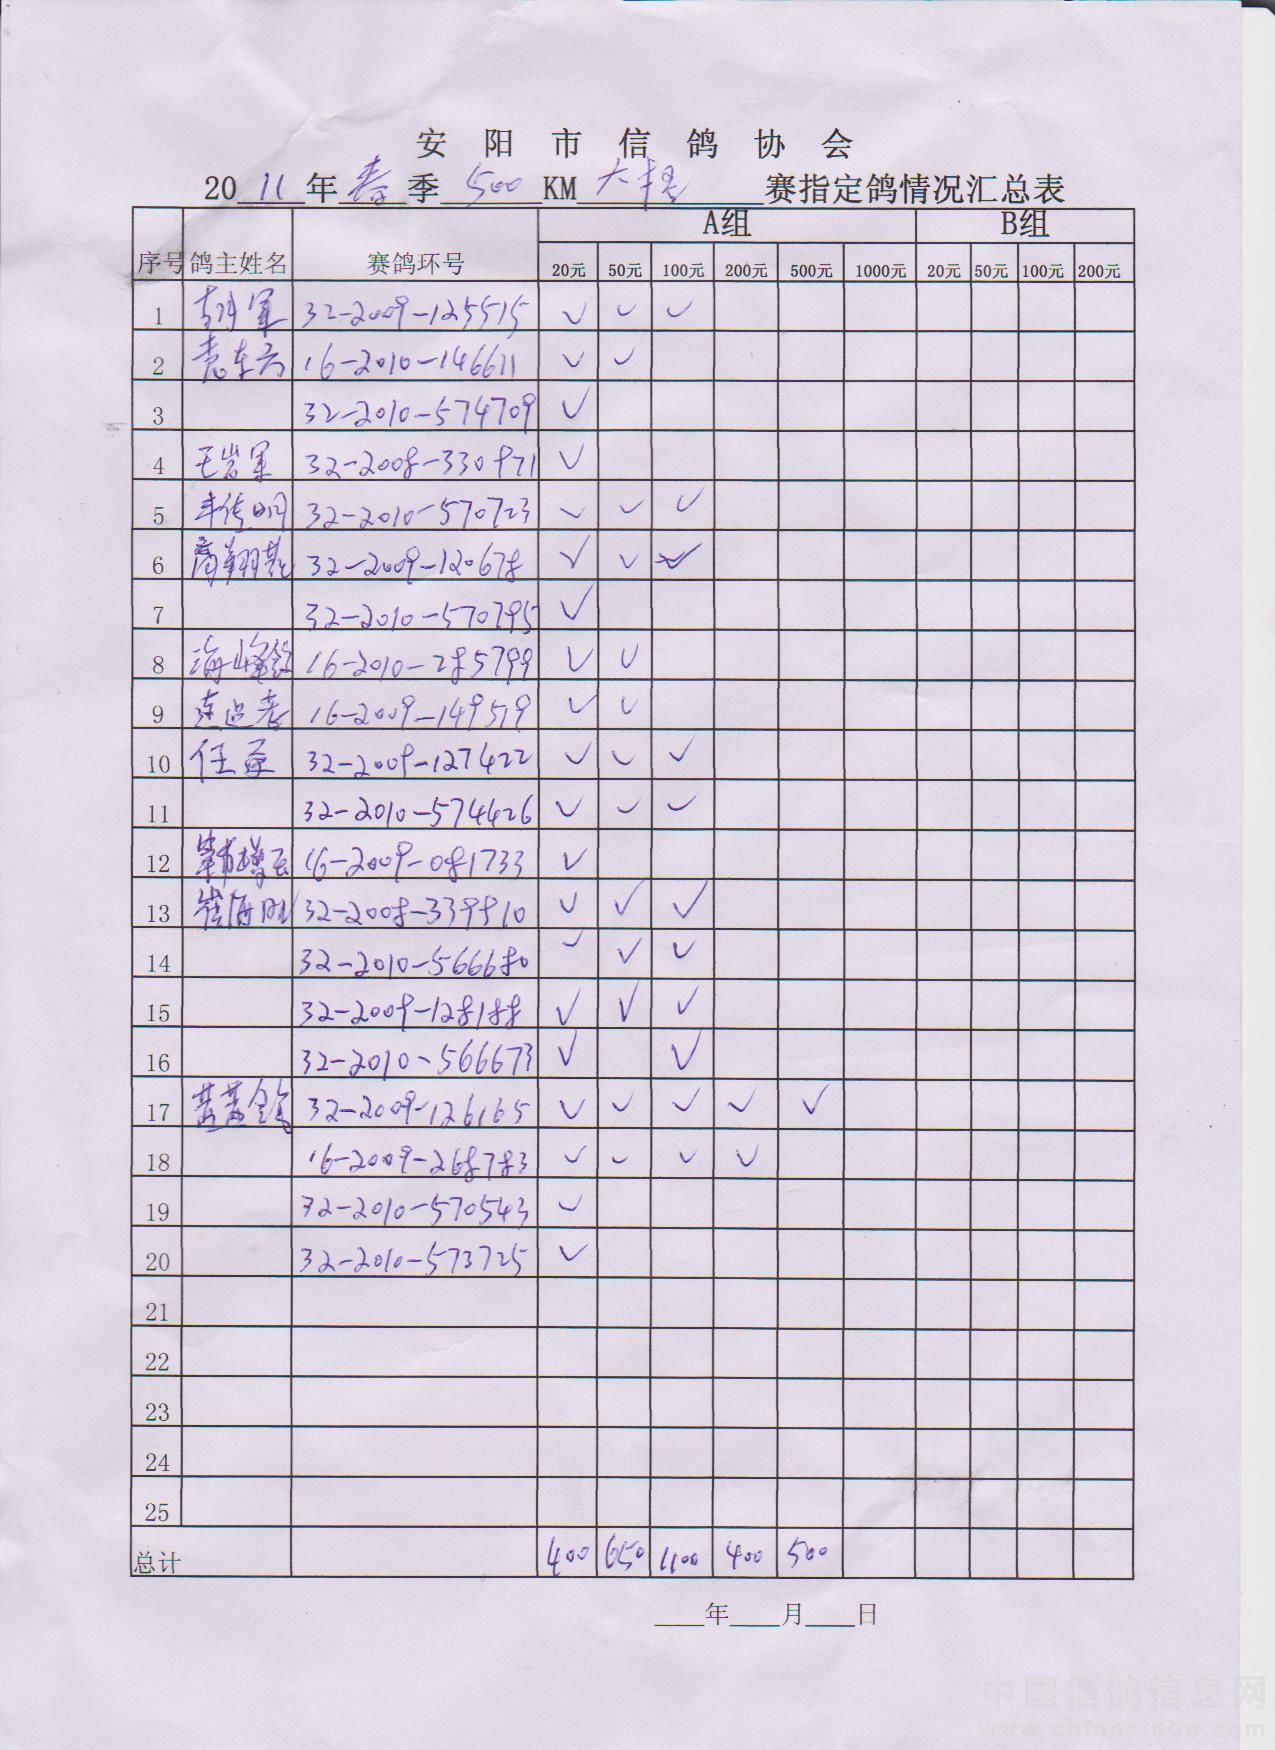 安阳市信鸽协会
20 11 年 春 季 500 KM 大 赛指定鸽情况汇总表
序号 鸽主姓名 赛鸽环号 A组 B组
20元 50元 100元 200元 500元 1000元 20元 50元 100元 200元
1 32-2009-125515 ✓ ✓ ✓
2 16-2010-146611 ✓ ✓
3 32-2010-574709 ✓
4 王岩军 32-2008-330871 ✓
5 32-2010-570723 ✓ ✓ ✓
6 32-2009-120678 ✓ ✓ ✓
7 32-2010-570795 ✓
8 海峰鸽 16-2010-285799 ✓ ✓
9 16-2009-149519 ✓ ✓
10 任 32-2009-127422 ✓ ✓ ✓
11 32-2010-574426 ✓ ✓ ✓
12 16-2009-081733 ✓
13 崔海旺 32-2008-339810 ✓ ✓ ✓
14 32-2010-566680 ✓ ✓ ✓
15 32-2009-128188 ✓ ✓ ✓
16 32-2010-566673 ✓ ✓
17 32-2009-126165 ✓ ✓ ✓ ✓ ✓
18 16-2009-268783 ✓ ✓ ✓ ✓
19 32-2010-570543 ✓
20 32-2010-573725 ✓
21
22
23
24
25
总计 400 650 1100 400 500
年 月 日
中国信鸽信息网
www.chinaxinge.com